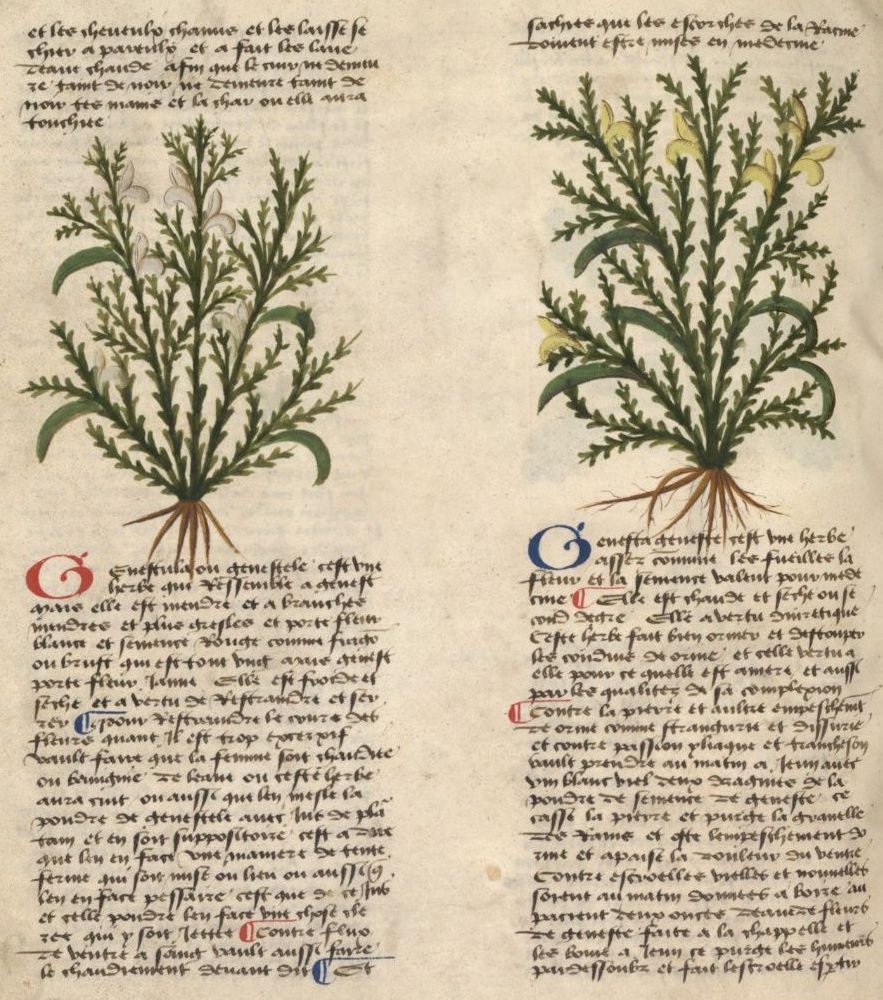 et les cheveulx chanus et les laisse se
chier a par eulx et a fait les lave
deaue chaude afin que le cuir ne demeu
re taint de noir ne demeure taint de
noir tes mains et la char ou elle aura
touchiee
Genestula ou genestele cest une
herbe qui Ressemble a genest
mais elle est mendre et a branches
mendres et plus gresles et porte fleur
blance et semence Rouge comme
ou brust qui est tout ung mais genest
porte fleur Jaune Elle est froide et
seche et a vertu de Restraindre et ser
rer ¶ pour Restraindre le cours des
fleurs quant Il est trop excezxif
vault faire que la femme soit chaudiee
ou baingnie de leaue ou ceste herbe
aura cuit ou aussi que len mesle la
poudre de genestele avec Jus de plā
tain et en soit suppositoire cest a dire
que len en face une maniere de tente
ferme qui soit mise ou lieu ou aussi q̄
len en face pessaire cest que de ce Jus
et celle poudre len face une chose cle
re qui y soit Jettee ¶ Contre flux
de ventre a sang vault aussi faire
le chaudiement devant dit ¶ Et
sachies que les escorches de la Racine
doivent estre mises en medecine
Genesta geneste cest une herbe
assez comune les fueilles la
fleur et la semence valent pour mede
cine ¶ Elle est chaude et seche ou se
cond degre Elle a vertu diuretique
Ceste herbe fait bien oriner et destouper
les conduis de orine et celle vertu a
elle pour ce quelle est amere et aussi
par les qualitez de sa complexion
¶ Contre la pierre et aultre empeschemt
de orine comme strangurie et dissurie
et contre passion yliaque et trancheson
vault prendre au matin a Jeun avec
vin blanc viel deux dragmes de la
poudre de semence de geneste ce
casse la pierre et purge la gravelle
des Rains et oste lempeschement do
rine et apaise la douleur du ventre
Contre escroelles vielles et nouvelles
soient au matin donnees a boire au
pacient deux onces deaue de fleurs
de geneste faite a la chappelle et
les boive a Jeun ce purge les humeurs
par dessoubz et fait lescroelle